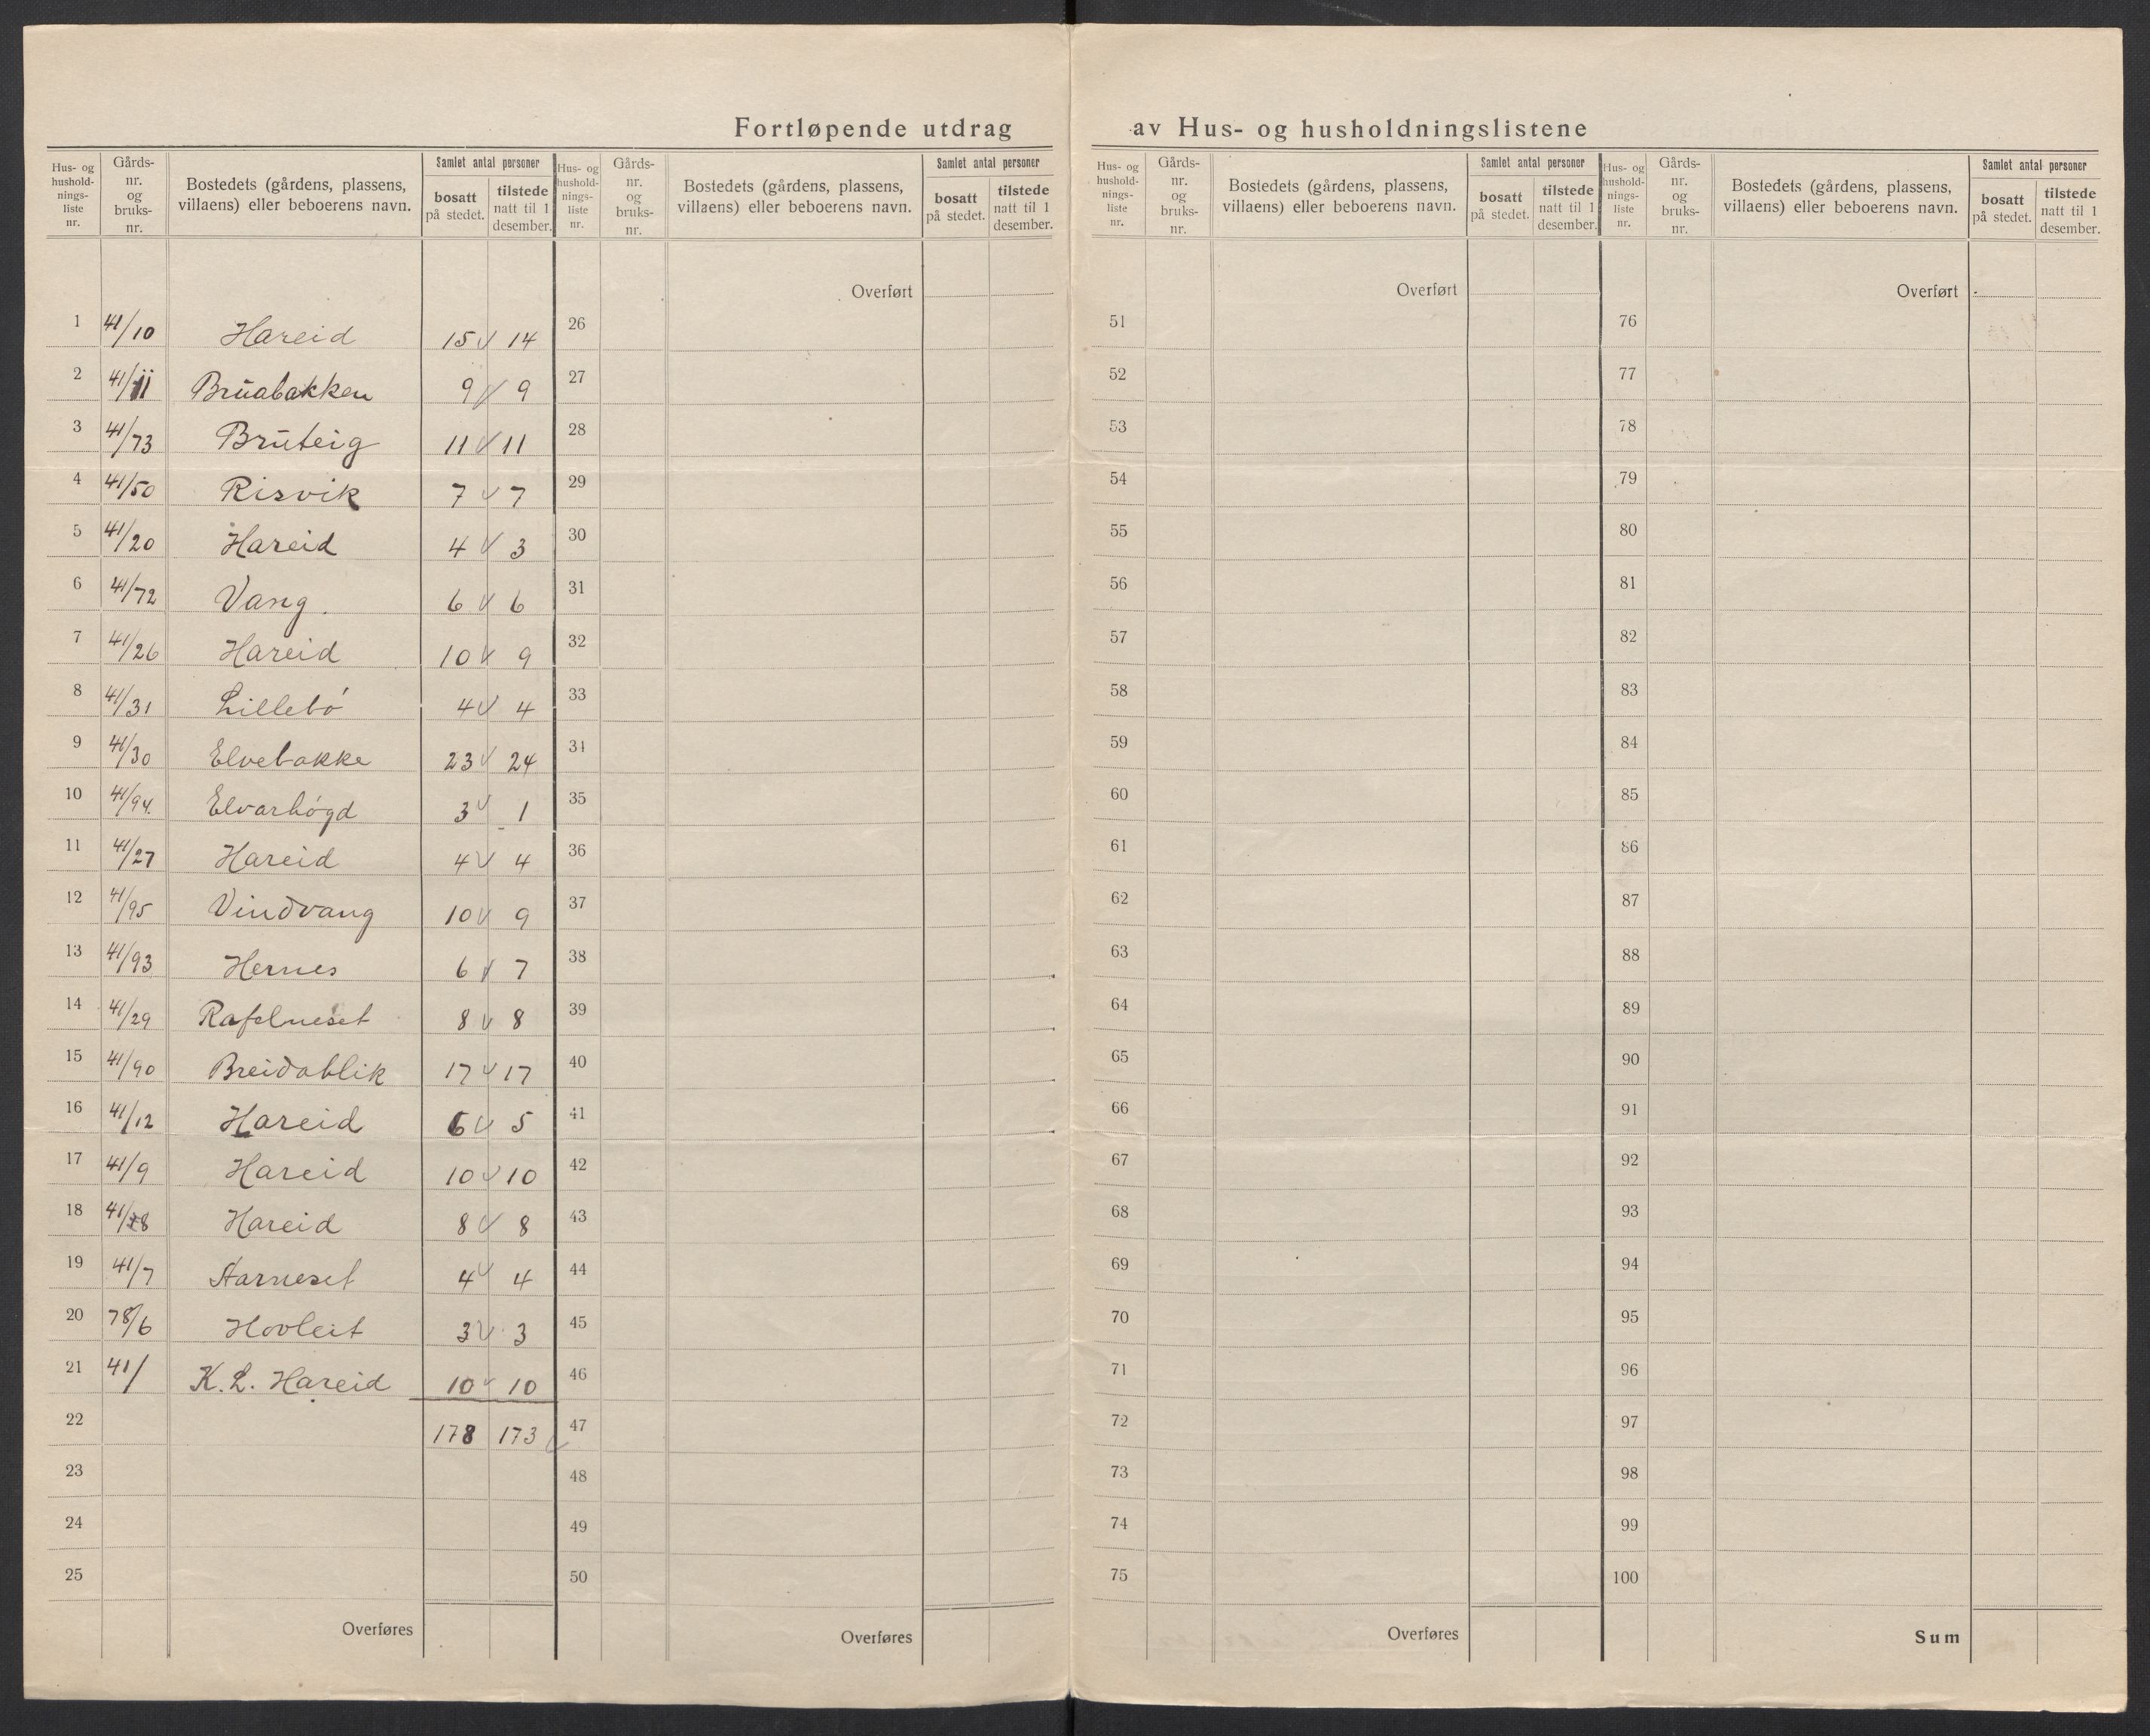 Fortløpende utdrag av Hus- og husholdningslistene
Hus- og hushold-nings-liste nr. Gårds-nr. og bruks-nr. Bostedets (gårdens, plassens, villaens) eller beboerens navn. Samlet antal personer bosatt på stedet. tilstede natt til 1 desember.
1 41/10 Hareid 15 14
2 41/11 Brūabakken 9 9
3 41/73 Brūteig 11 11
4 41/50 Risvik 7 7
5 41/20 Hareid 4 3
6 41/72 Vang. 6 6
7 41/26 Hareid 10 9
8 41/31 Lillebó 4 4
9 41/30 Elvebakke 23 24
10 41/94. Elvarhógd 3 1
11 41/27 Hareid 4 4
12 41/95 Vindvang 10 9
13 41/93 Hernes 6 7
14 41/29 Rafelneset 8 8
15 41/90 Breidablik 17 17
16 41/12 Hareid 6 5
17 41/9 Hareid 10 10
18 41/8 Hareid 8 8
19 41/7 Starneset 4 4
20 78/6 Hovleit 3 3
21 41/ K. L. Hareid 10 10
22 178 173
23
24
25
Overføres
Hus- og hushold-nings-liste nr. Gårds-nr. og bruks-nr. Bostedets (gårdens, plassens, villaens) eller beboerens navn. Samlet antal personer bosatt på stedet. tilstede natt til 1 desember.
Overført
26
27
28
29
30
31
32
33
34
35
36
37
38
39
40
41
42
43
44
45
46
47
48
49
50
Overføres
Hus- og hushold-nings-liste nr. Gårds-nr. og bruks-nr. Bostedets (gårdens, plassens, villaens) eller beboerens navn. Samlet antal personer bosatt på stedet. tilstede natt til 1 desember.
Overført
51
52
53
54
55
56
57
58
59
60
61
62
63
64
65
66
67
68
69
70
71
72
73
74
75
Overføres
Hus- og hushold-nings-liste nr. Gårds-nr. og bruks-nr. Bostedets (gårdens, plassens, villaens) eller beboerens navn. Samlet antal personer bosatt på stedet. tilstede natt til 1 desember.
Overført
76
77
78
79
80
81
82
83
84
85
86
87
88
89
90
91
92
93
94
95
96
97
98
99
100
Sum